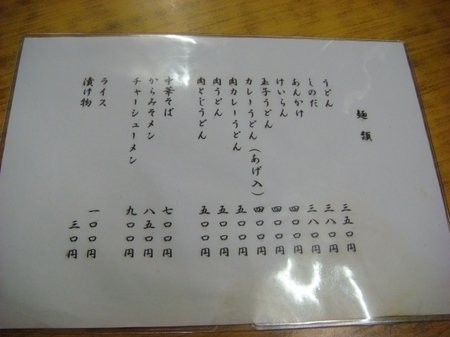 麺類
うどん 三五〇円
しのだ 三八〇円
あんかけ 三八〇円
けいらん 四〇〇円
玉子うどん 四〇〇円
カレーうどん(あげ入) 四〇〇円
肉カレーうどん 五〇〇円
肉うどん 五〇〇円
肉とじうどん 五〇〇円
中華そば 七〇〇円
からみそメン 八五〇円
チャーシューメン 九〇〇円
ライス 一〇〇円
漬け物 三〇円